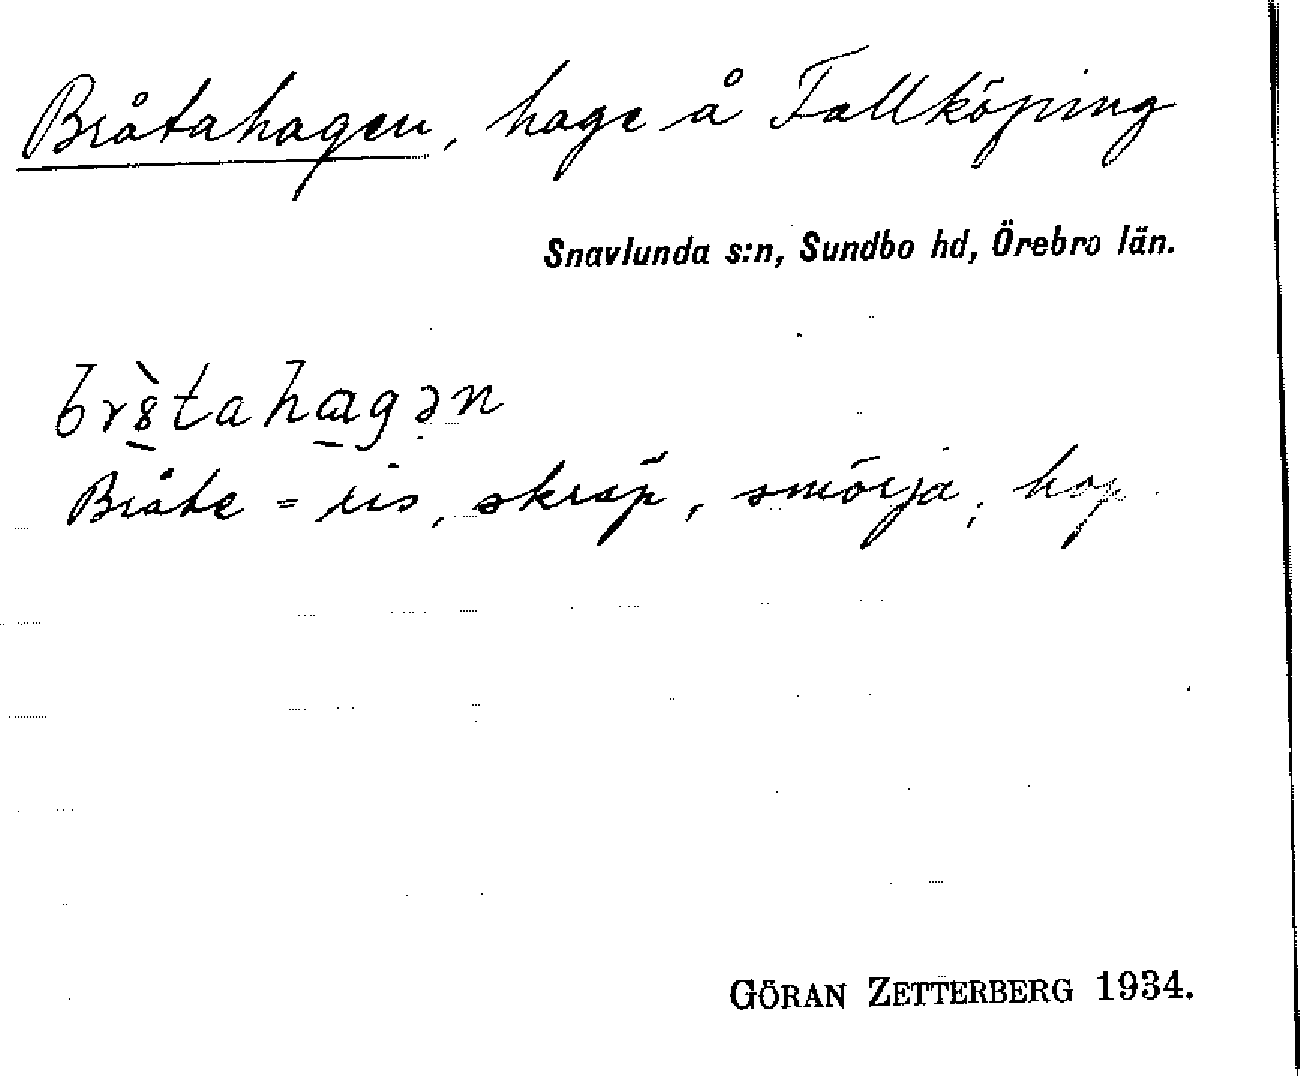 Bråtahagen, hage å Fallköping
Snavlunda s:n, Sundbo hd, Örebro län.
br8̱̀taha̱gən
Bråte = ris, skräp, smörja, hop
GÖRAN ZETTERBERG 1934.